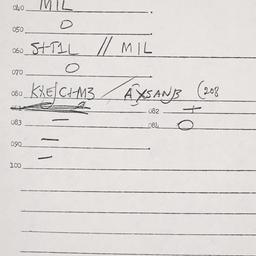 040 MIL
050 O
060 S+T1L // MIL
070 O
080 KXE/C+M3 / AXSANB (208
082 +
083 — 084 O
090 —
100 —